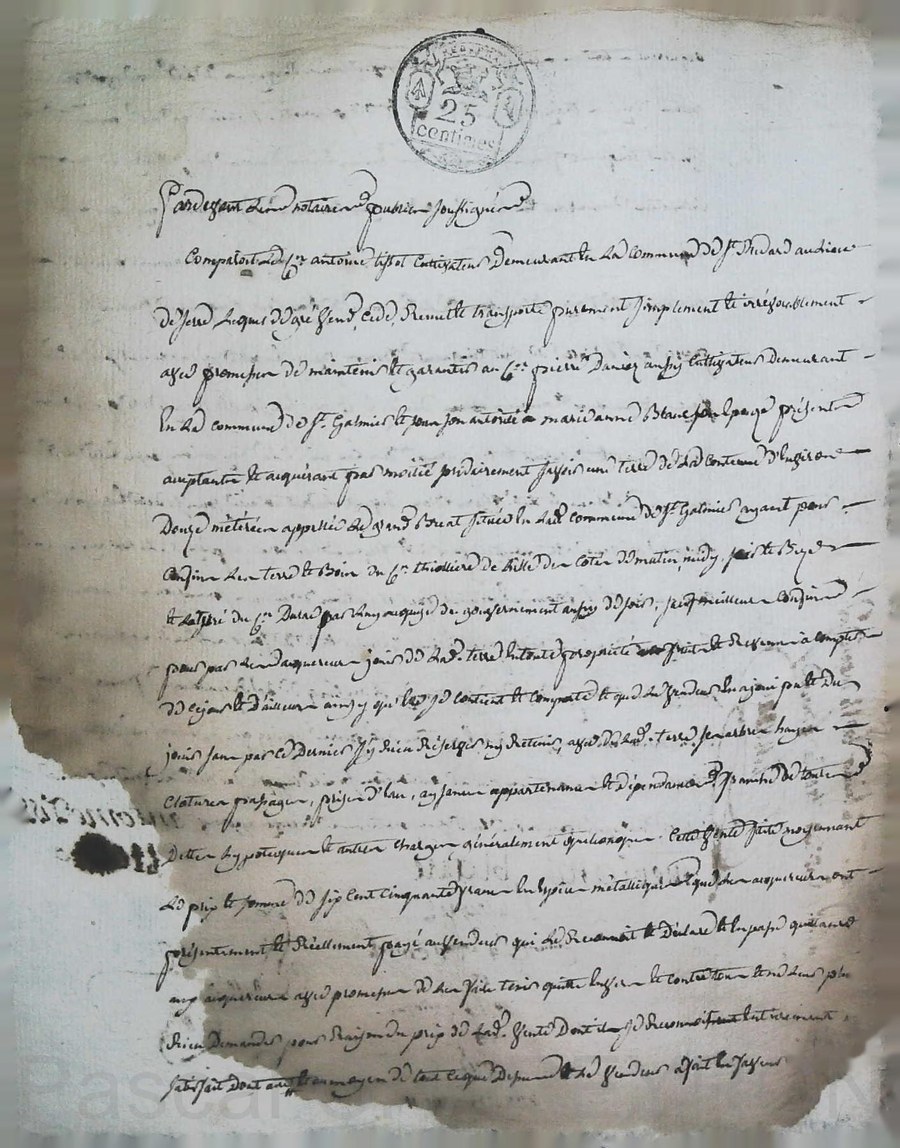 RÉP. FRA.
25
centimes
Pardevant Les notaires publics soussignés
Comparoit Le Cen antoine tissot Cultivateur Demeurant En La Commune de St Medard au Lieu
de Lequel de gré Vend, Cede, Remet et transporte purement simplement et irrévocablement
avec promesse de maintenir et garantir au Cen pierre aussy Cultivateur Demeurant
En La Commune de St Galmier et sous son autorité a marie anne son Epouze présents
acceptants et acquérant par moitié une terre de La Contenue d'Environ
Douze meterées appellée Le grand Situé En Lad. Commune de St Galmier ayant pour
Confins Les terre et Bois du Cen thiolliere de L'isle des Cotés de matin, midy, soir et Bize
et du Cen acquize du gouvernement aussy de soir, sauf meilleurs Confins
pour par Les acquereurs jouir de Lad. terre En toute propriété fruits et Revenus a Compter
de Ce jour et D'ailleurs ainsy qu'elle se Contient et Comporte et que Le Vendeur En a joui pu et Du
jouir sans par Ce Dernier S'y Rien Réserver ny Retenir, avec De Lad. terre, ses arbres hayes
Clotures passages, prises D'Eau, aysances appartenances et Dépendances, franche De toutes
Dettes hypoteques et autres Charges généralement quelconques. Cette Vente faite moyennant
Le prix et somme de six Cent Cinquante francs En Espèces métalliques que Les acquereurs ont
présentement et Réellement payé au Vendeur qui Le Reconnoit et Déclare et En passe quittance
aux acquereurs avec promesse de Les faire tenir quittes Envers et Contre tous et ne Leur plus
Rien Demander pour Raison du prix de Lad. Vente Dont il se Reconnoit Entierement
satisfait Dont au moyen de tout Ce que Dessus Le Vendeur